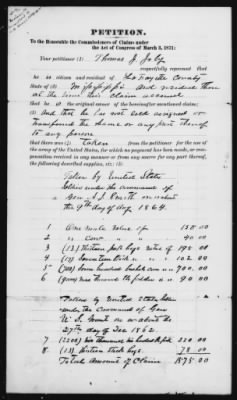 PETITION.
To the Honorable the Commissioners of Claims under
the Act of Congress of March 3, 1871:
Your petitioner (1) Thomas J.
respectfully represents that
he is citizen and resident of La Fayette County
State of (2) Mississippi and resided there
at the time his claim accrued
that he (3) the original owner of the hereinafter mentioned claims;
(3) And that he has not sold assigned or
transferred the same or any part thereof
to any person
that there was (4) Taken from the petitioner for the use of
the army of the United States, for which no payment has been made, or com-
pensation received in any manner or from any source for any part thereof,
the following described supplies, etc: (5)
Taken by United States
Soldiers under the command of
Gen. A. J. Smith on or about
the 9th day of Aug 1864.
1 One mule value of 150 00
2 " cow " " 40 00
3 (13) thirteen pork hogs value of 195 00
4 (17) Seventeen " " 102 00
5 (700) Seven hundred bushels corn 700.00
6 90 00
Taken by United States
under the Command of Gen
U. S. Grant on or about the
27th day of Dec 1862.
7 220 00
8 (13) thirteen stock hogs 78 00
Total Amount of Claim 1575 00